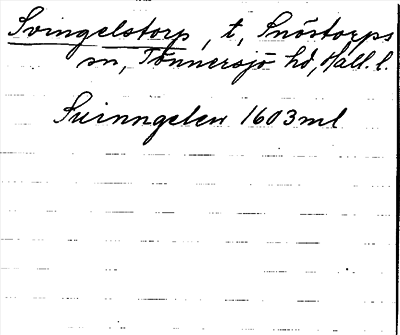 Svingelstorp, t, Snöstorps
sn, Tönnersjö hd, Hall. l.
Svinngelen 1603 ml